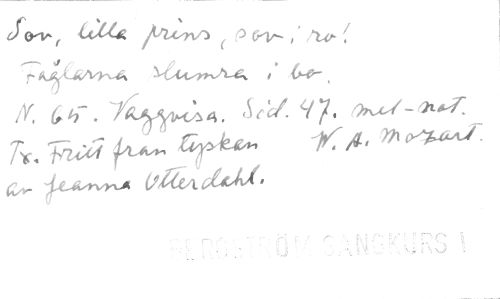 Sov, lilla prins, sov i ro!
Fåglarna slumra i bo.
N. 65. Vaggvisa. Sid. 47. mel-not.
Tx. Fritt från tyskan W. A. Mozart.
av Jeanna Otterdahl.
BERGSTRÖM SÅNGKURS I